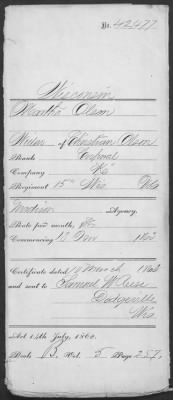 No. 42477
Wisconsin
Martha Olson
Widow of Christian Olson
Rank Corporal
Company "K"
Regiment 15th Wis Vols
Madison Agency.
Rate per month, $8
Commencing 13 Nov 1862
Certificate dated March 186
and sent to Samuel W. Reese
Dodgeville
Wis
Act 14th July, 1862.
Book B Vol. 5 Page 257,